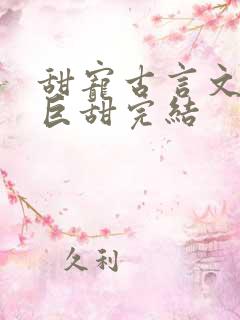 甜寵古言文
巨甜完結
久利